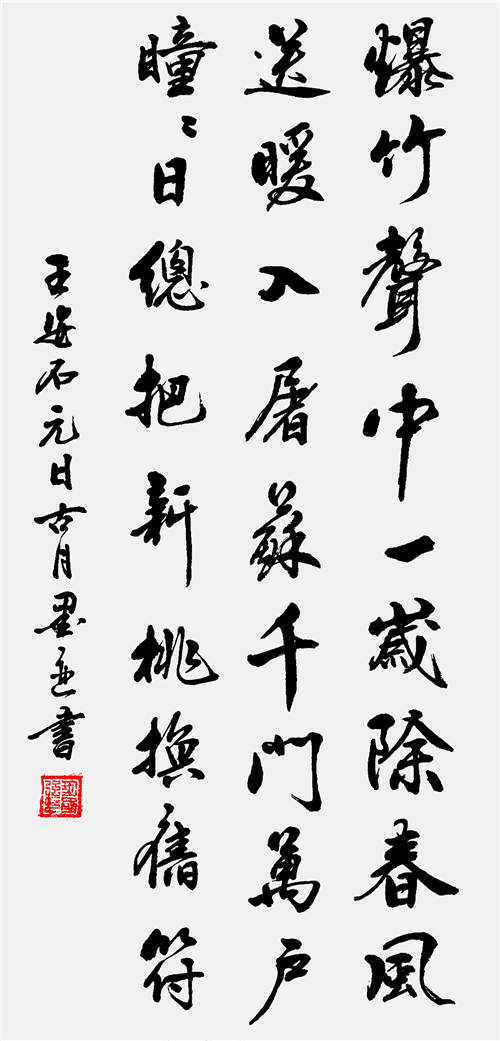 爆竹聲中一歲除春風
送暖入屠蘇千門萬戶
瞳〻日總把新桃換舊符
王安石元日古月墨書